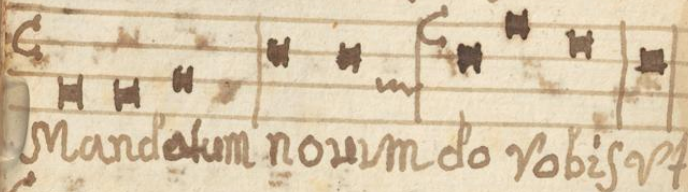 Mandatum nouum do vobis vt